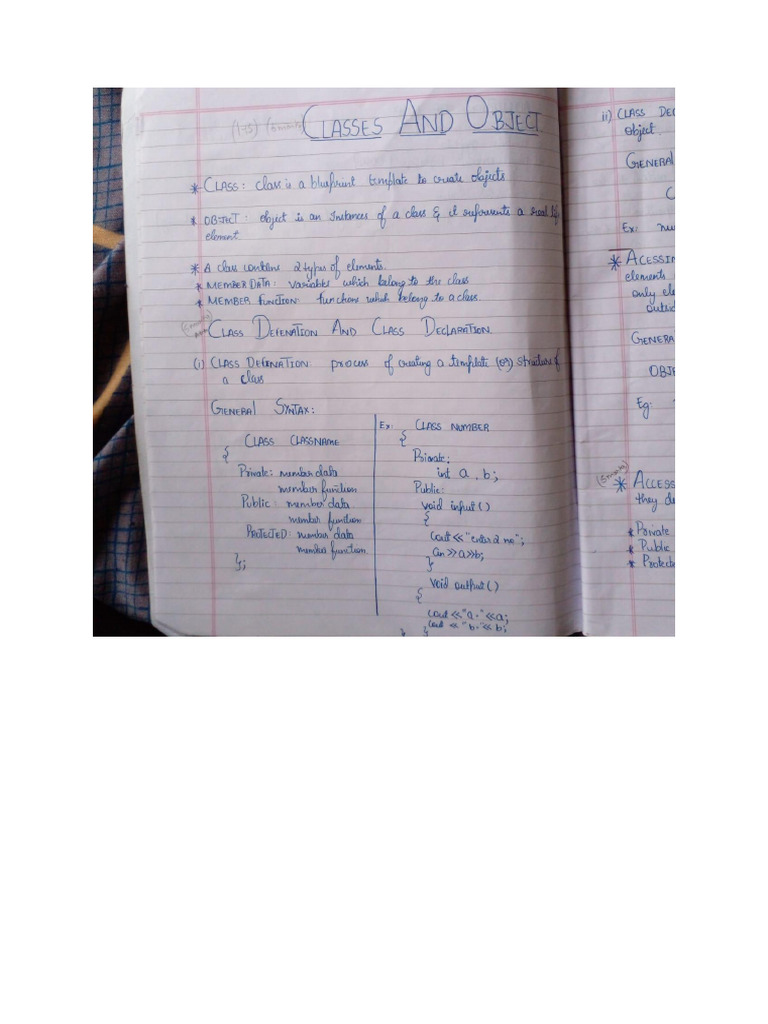 (1-15) (5marks) CLASSES AND OBJECT
* CLASS: class is a blueprint template to create objects.
* OBJECT: object is an instances of a class & it represents a real life
element
* A class contains 2 types of elements.
* MEMBER DATA: variables which belong to the class
* MEMBER FUNCTION: functions which belong to a class.
CLASS DEFENATION AND CLASS DECLARATION.
(i) CLASS DEFENATION: process of creating a template (or) structure of
a class
GENERAL SYNTAX:
CLASS CLASSNAME
{
Private: member data
member function
Public: member data
member function
PROTECTED: member data
member function
};
Ex: CLASS NUMBER
{
Private:
int a, b;
Public:
void input()
{
cout<<"enter 2 no";
cin>>a>>b;
}
void output()
{
cout<<"a="<<a;
cout<<"b="<<b;
} }
ii) CLASS DEC
object.
GENERAL
C
Ex: nu
* ACESSIN
elements
only ele
outsid
GENERA
OBJE
Eg:
(5marks)
* ACCESS
they de
* Private
* Public
* Protecte